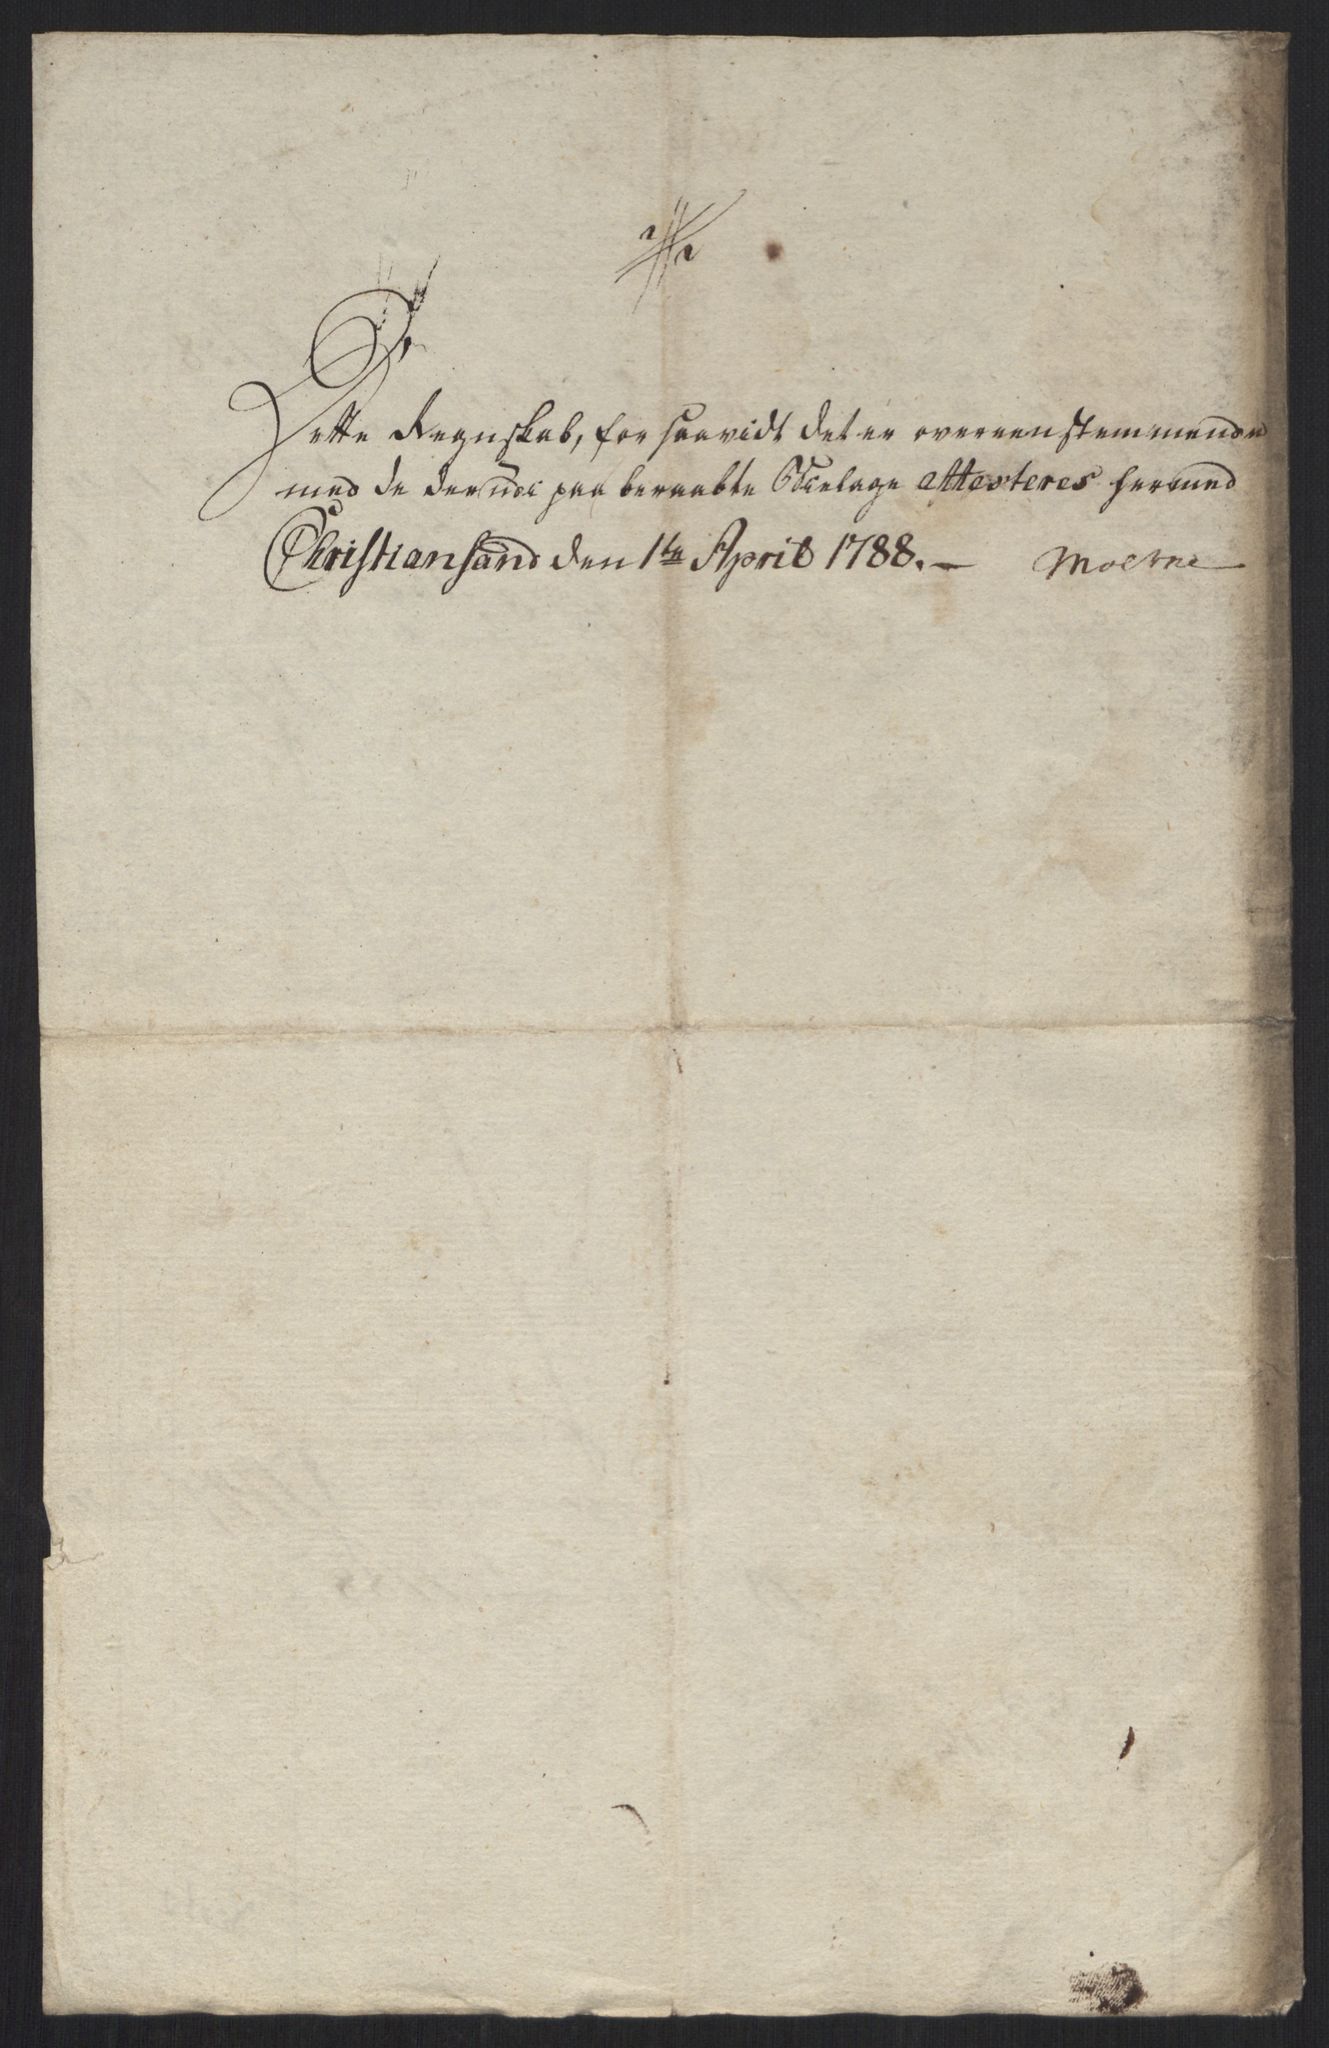 Dette Regnskab, for saavidt det er overeenstemmende
med de derudi paa beraabte Bielage attesteres hermed
Christiansand den 1te April 1788. —